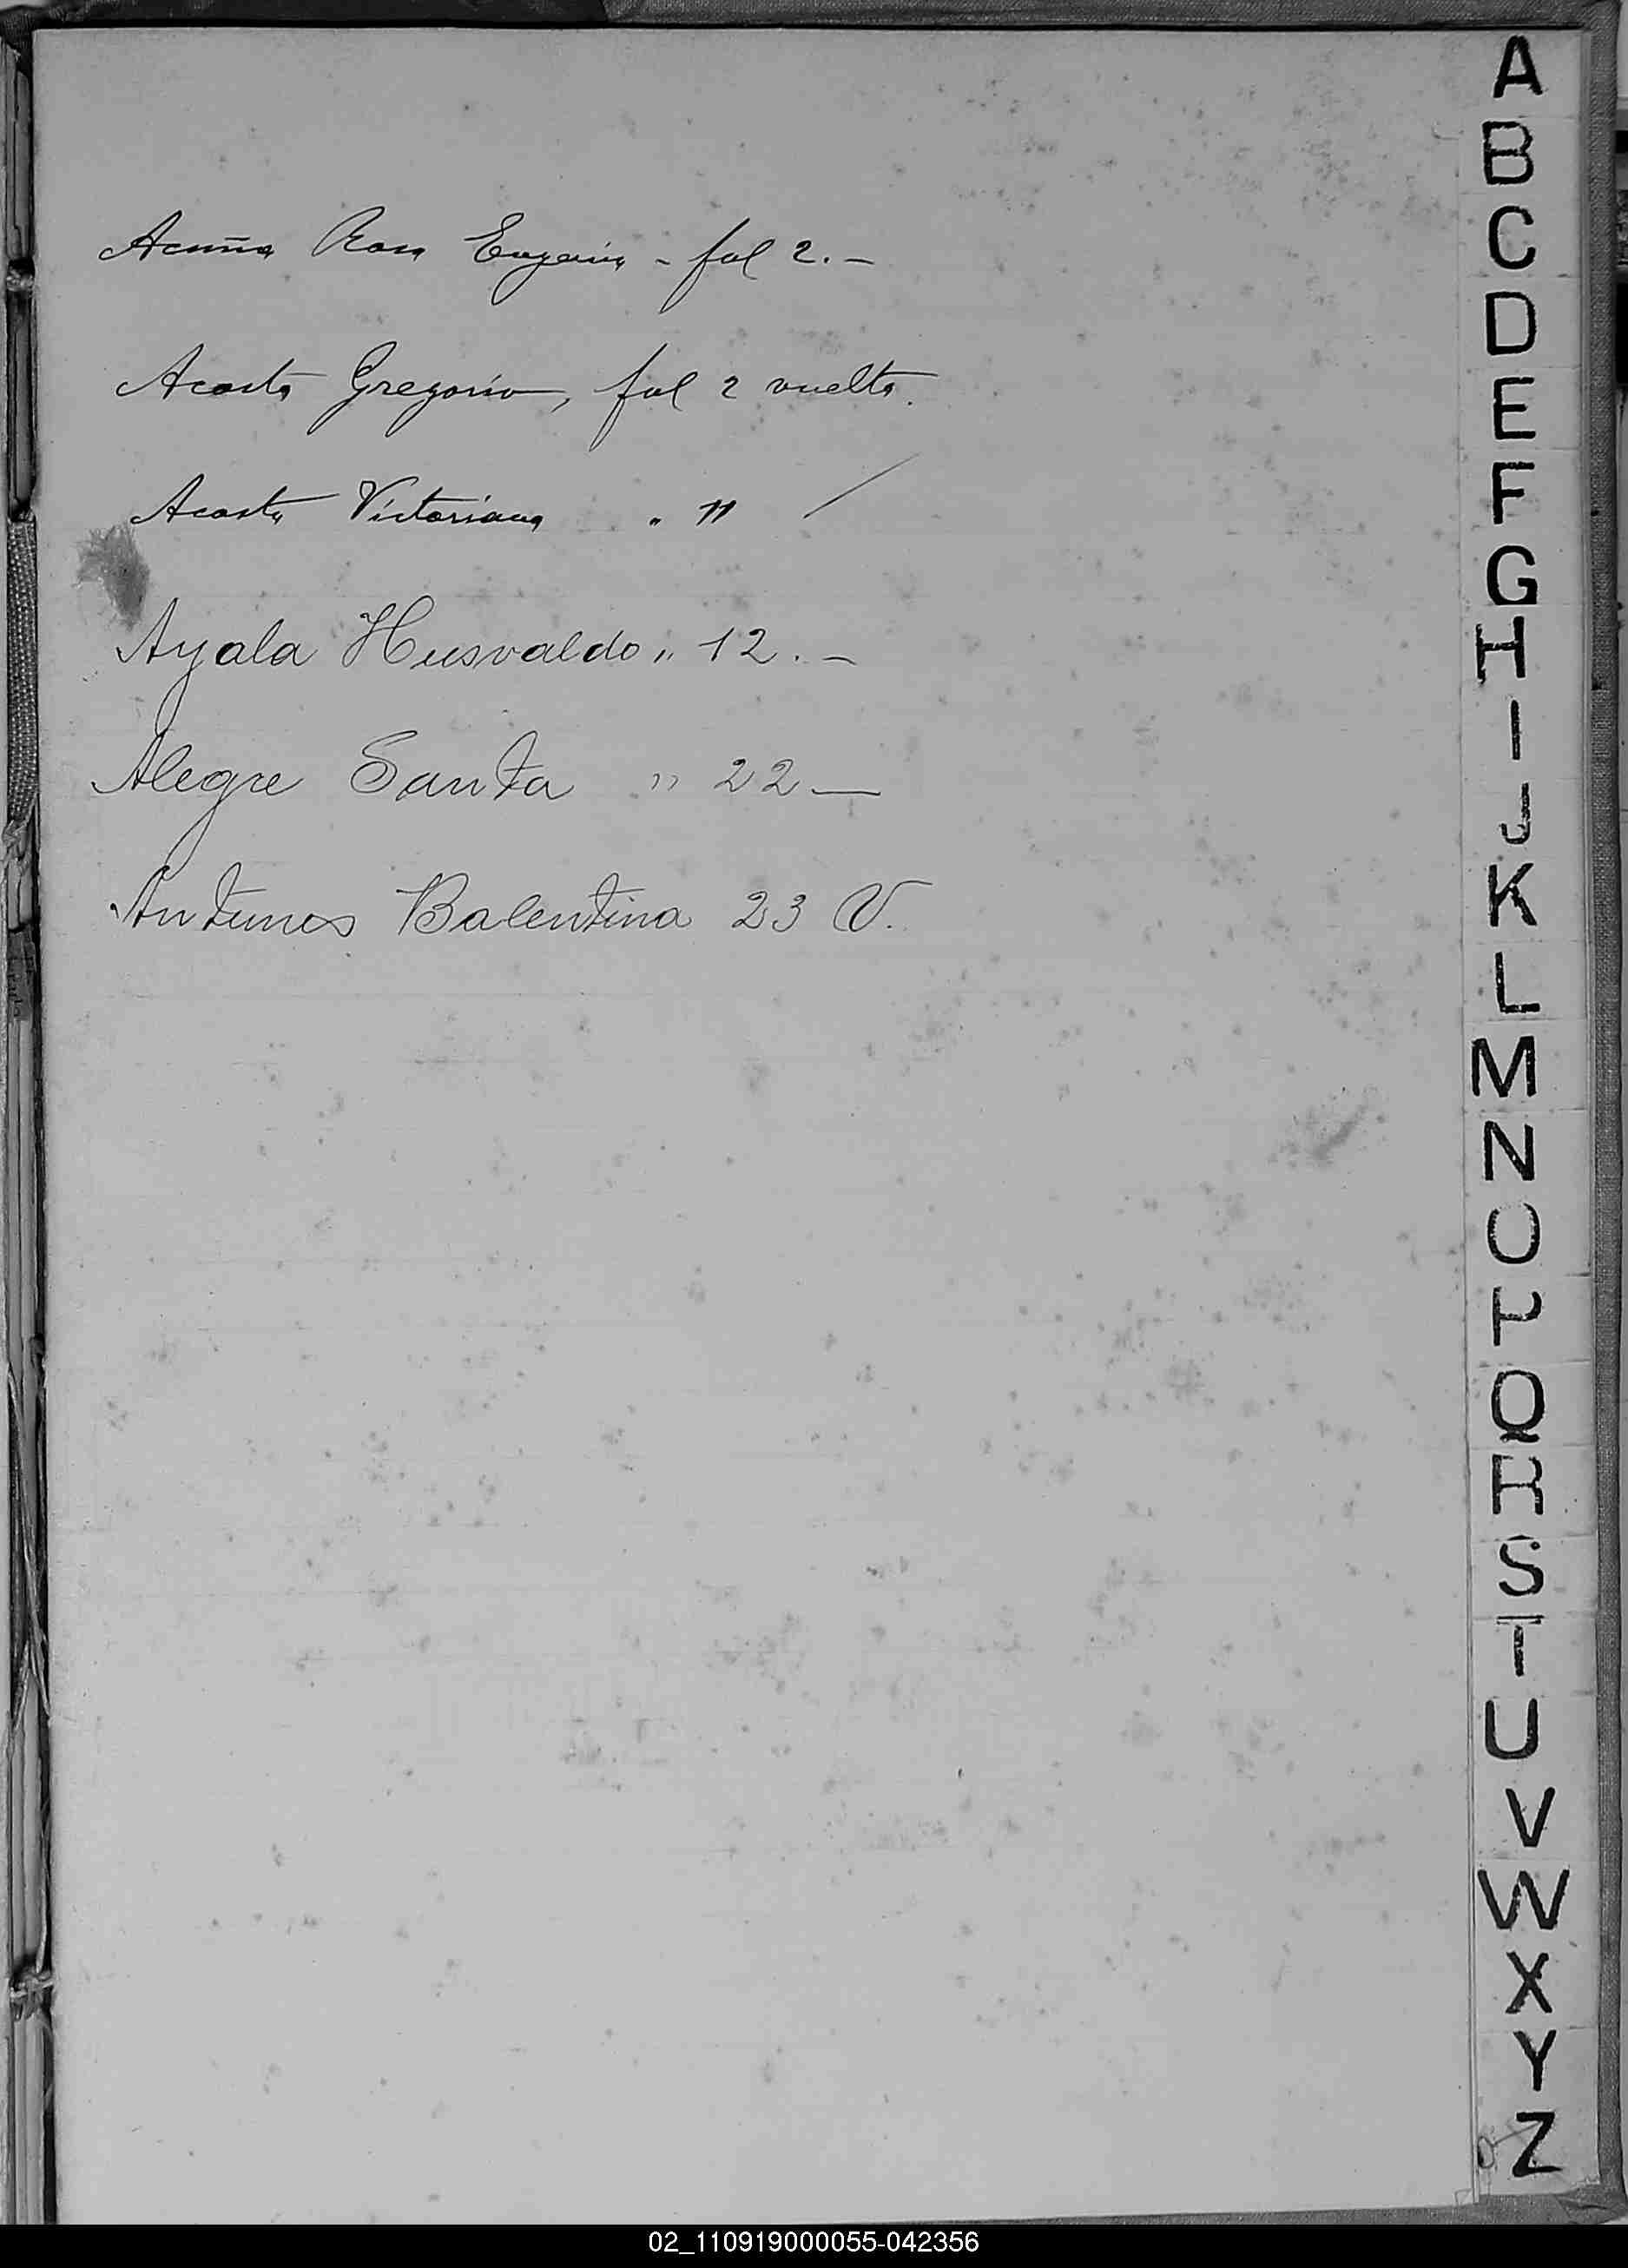 Acuña Rosa Eugenia - fol 2. -
Acosta Gregorio, fol 2 vuelta.
Acosta Victoriana " 11 /
Ayala Husvaldo " 12. -
Alegre Santa " 22 —
Antunes Balentina 23 V.
A
B
C
D
E
F
G
H
I
J
K
L
M
N
O
P
Q
R
S
T
U
V
W
X
Y
Z
02_110919000055-042356